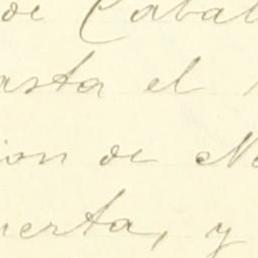 de Cabal
asta el
ion de Ne
uerta, y